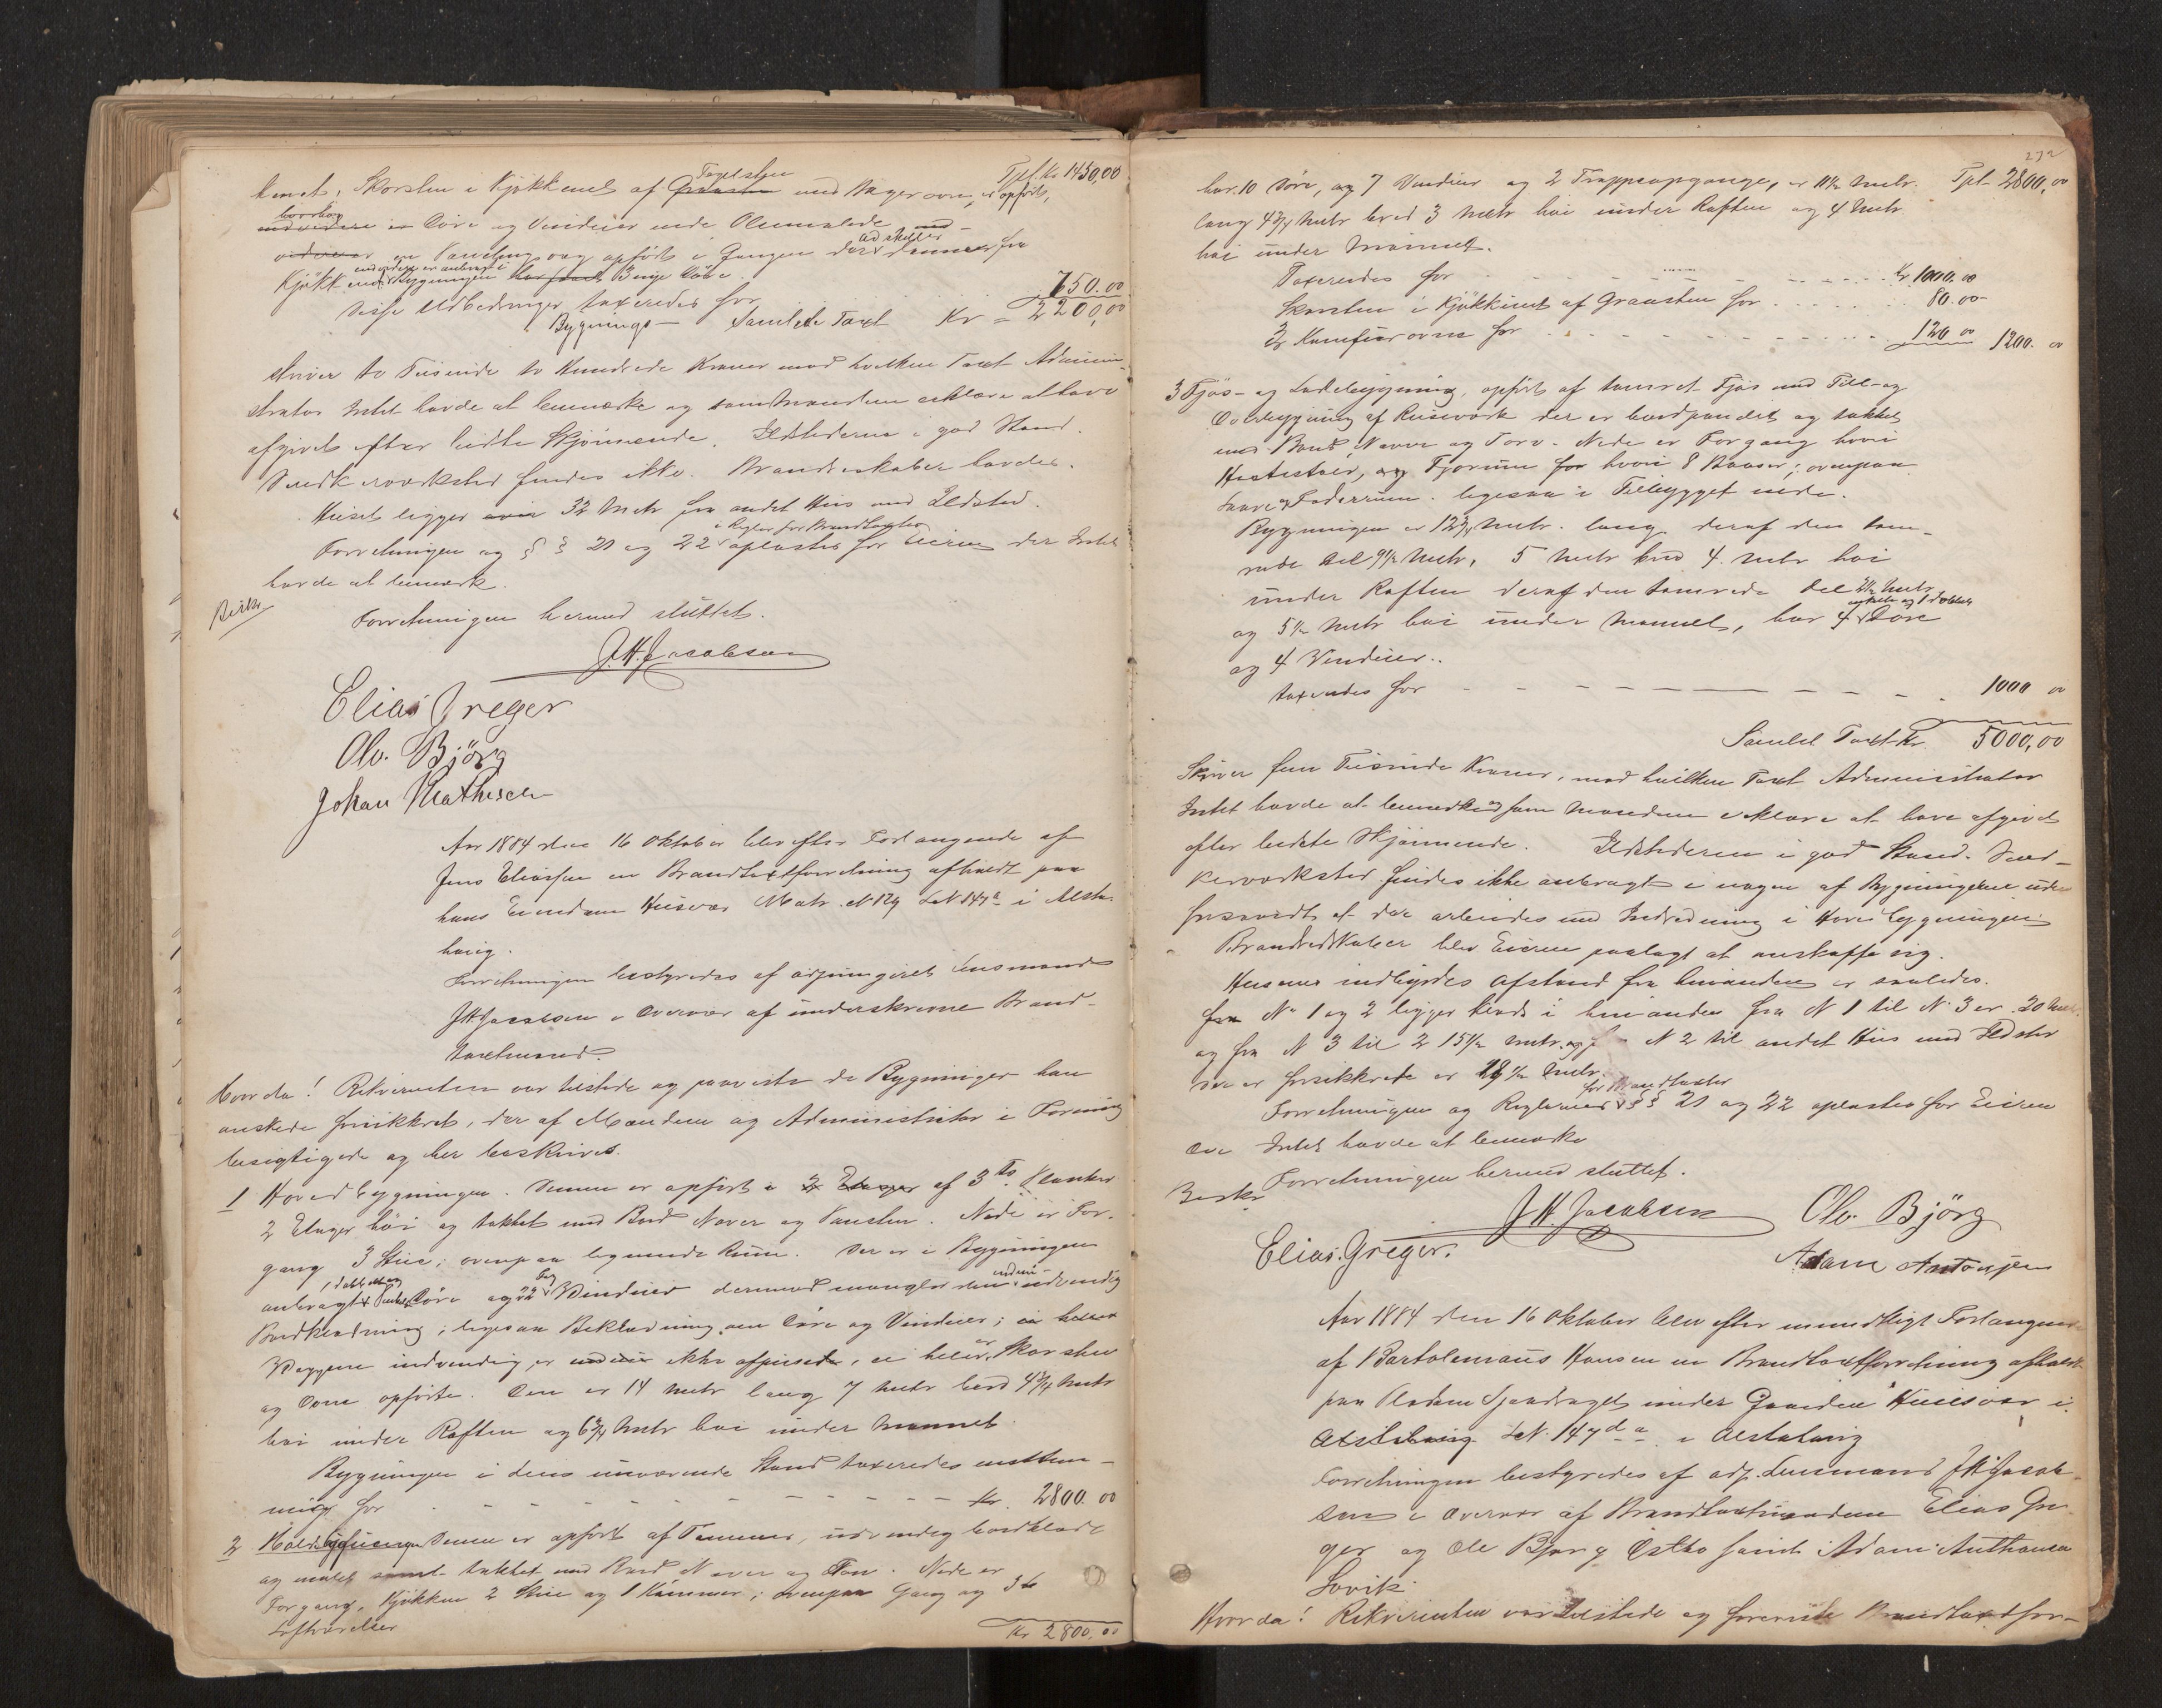 Tpt. Kr 1450,00
Skorsten i Kjøkkenet af Teglsten med Mager ovn, er opført,
Døre og Vinduer ende Oliemalede
en Paneling og opført i Gangen der adskiller denne fra
Kjøkk Bygningen
Disse Udbedringer taxeredes for 750.00
Bygnings- Samlede Taxt Kr = 2200,00
skriver to Tusinde to Hundrede Kroner mod hvilken Taxt Admini-
strator Intet havde at bemærke og som Mændene erklære at have
afgivet efter bedste Skjønnende. Ildstederne i god Stand.
Snedkerværksted findes ikke. Brandredskaber havdes.
Huset ligger 32 Metr fra andet Hus med Ildsted.
Forretningen og § § 21 og 22 i Regler for Brandtaxter oplæstes for Eieren der Intet
havde at bemærk.
Forretningen hermed sluttet.
Beskr
J.H. Jacobsen
Elias Greger
Ole. Björg
Johan Mathisen
Aar 1884 den 16 Oktober blev efter Forlangende af
Jens Eliassen en Brandtaxtforretning afholdt paa
hans Eiendom Husvær Matr. N 129 LN 147a i Alsta-
houg.
Forretningen bestyredes af adjungeret Lensmand
JHJacobsen i Overvær af underskrevne Brand-
taxtmænd.
Hvor da! Rekvirenten var tilstede og paaviste de Bygninger han
ønskede forsikkret, der af Mændene og Administrator i Forening
besigtigede og her beskrives.
1 Hovedbygningen. Denne er opført i 2 Etager af 3 to. Planker
2 Etager höi og takket med Bord Næver og Pansten. Nede er For-
gang 3 Stuer; ovenpaa lignende Rum. Der er i Bygningen
anbragt 1 dobbelt og enkelt Döre og 22 Fag Vinduer dermed mangler den endnu udvendig
Bordklædning; ligesaa Beklædning om Döre og Vinduer;
Væggene indvendig er ikke afpudsede, ei heller er Skorsten
og Ovne opførte. Den er 14 Metr lang 7 Metr bred 4 3/4 Metr
höi under Raften og 6 3/4 Metr hoi under Mønnet.
Bygningen i dens nuværende Stand taxeredes enstem-
mig for - - - - - - - - - - Kr. 2800.00
2 Denne er opført af Tømmer, udvendig bordklædt
og malet samt takket med Bord Næver og Torv. Nede er
Forgang, Kjøkken 2 Stue og 1 Kammer; ovenpaa Gang og 3
Loftværelser
Kr 2800.00
272
har 10 Döre, og 7 Vinduer og 2 Trappeopgange, er 11 1/2 Metr. Tpt. 2800,00
lang 4 3/4 Metr bred 3 Metr hoi under Raften og 4 Metr
hoi under Mønnet.
Taxeredes for - - - - - - Kr 1000.00
Skorsten i Kjøkkenet af Graasten for - - - - 80.00
2 Komfurovne for - - - - - 120 00 1200.00
3 Fjøs- og Ladebygning, opført af tømret Fjøs med Till-og
Paabygning af Reisværk der er bordpandet og takket
med Bord, Næver og Torv. Nede er Forgang hvori
Hestestald, og Fjøsrum for hvori 8 Baaser; ovenpaa
Laave og Foderrum. ligesaa i Tilbygget nede.
Bygningen er 12 3/4 Metr. lang deraf den tøm-
rede Del 9 1/2 Metr, 5 Metr bred 4 Metr hoi
under Raften deraf den tømrede Del 2 1/2 Metr
og 5 1/2 Metr hoi under Mønnet, har 4 enkelte og 1 dobbelt Döre
og 4 Vinduer.
taxeredes for - - - - - - - - - 1000 00
Samlet Taxt Kr. 5000,00
Skriver fem Tusinde Kroner, mod hvilken Taxt Administrator
Intet havde at bemærke og som Mændene erklære at have afgivet
efter bedste Skjønnende. Ildstederne i god Stand. Sned-
kerværksted findes ikke anbragt i nogen af Bygningerne uden
forsaavidt at der arbeides med Indredning i Hovedbygningen.
Brandredskaber blev Eieren paalagt at anskaffe sig.
Husenes indbyrdes Afstand fra hinanden er saaledes.
fra No 1 og 2 ligger klods i hinanden fra N 1 til N. 3 er 20 Metr.
og fra N 3 til 2 15 1/2 Metr. og f N 2 til andet Hus med Ildsted
der er forsikkrede er 18 1/2 Metr.
Forretningen og Reglernes for Brandtaxter § § 21 og 22 oplæstes for Eieren
der Intet havde at bemærke
Forretningen hermed sluttet.
Beskr
J.H. Jacobsen Ole. Björg
Elias. Greger. Adam Antonsen
Aar 1884 den 16 Oktober blev efter mundtligt Forlangende
af Bartolomæus Hansen en Brandtaxtforretning afholdt
paa Pladsen under Gaarden Husvær i
Alstahoug LN. 147 d a i Alstahoug
Forretningen bestyredes af adj. Lensmand JH Jacob-
sen i Overvær af Brandtaxtmændene Elias Gre-
ger og Ole Bjørg samt Adam Anthonsen
Sovik.
Hvor da! Rekvirenten var tilstede og foreviste Brandtaxtfor-